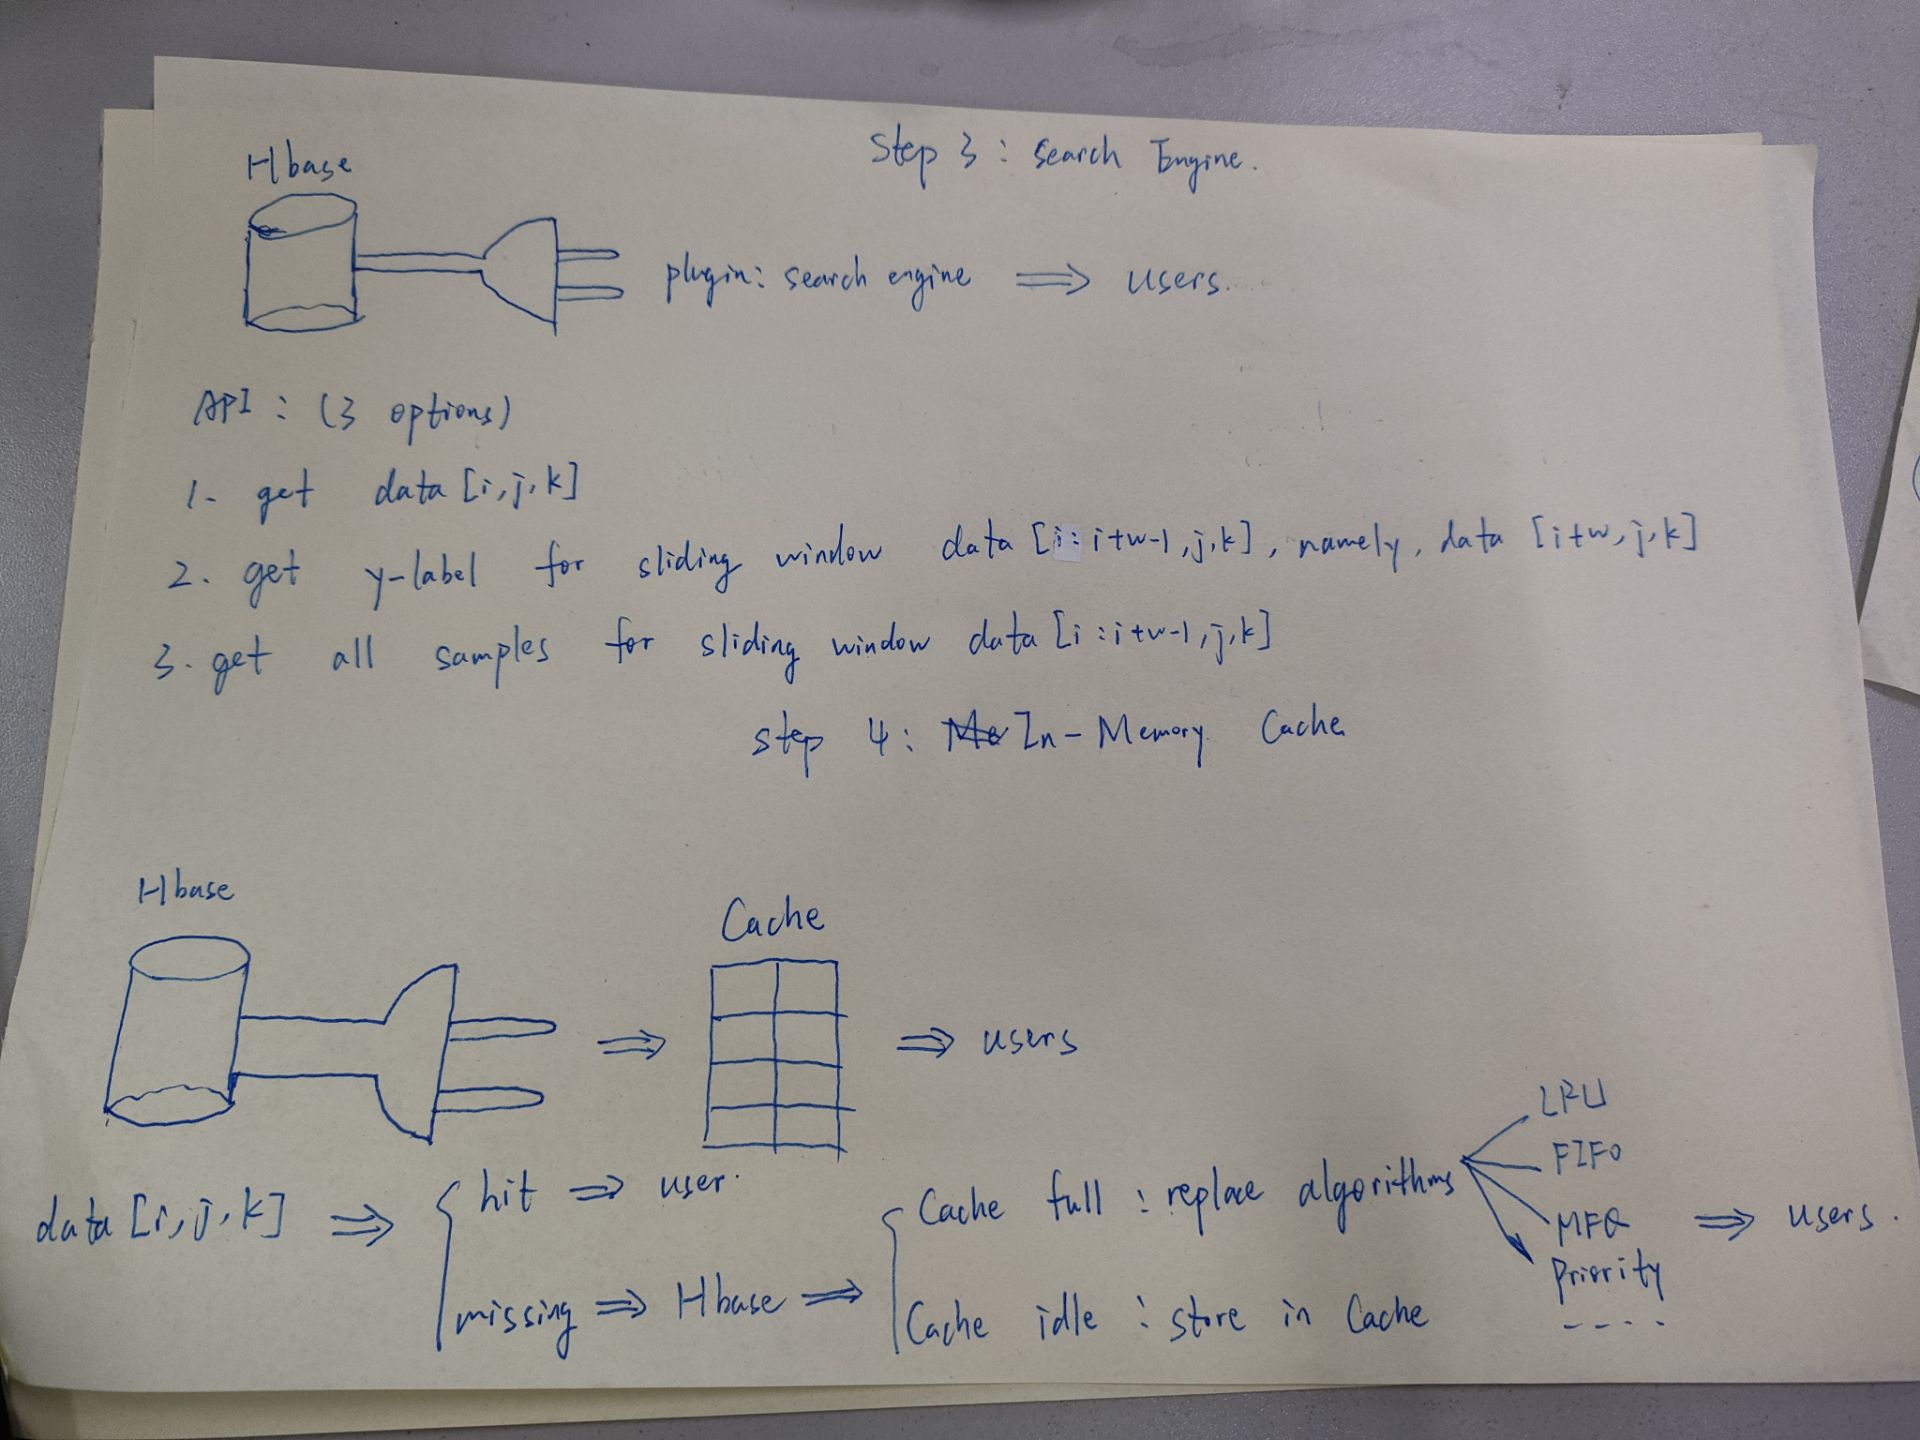 Step 3 : Search Engine.
Hbase
plugin: search engine ⇒ users.
API : (3 options)
1. get data [i,j,k]
2. get y-label for sliding window data [i: i+w-1,j,k], namely, data [i+w,j,k]
3. get all samples for sliding window data [i : i+w-1,j,k]
step 4 : In-Memory Cache
Hbase
Cache
⇒ ⇒ users
data [i,j,k] ⇒
hit ⇒ user.
missing ⇒ Hbase ⇒
Cache full : replace algorithms
Cache idle : store in Cache
FIFO
MFQ
Priority
----
⇒ users.